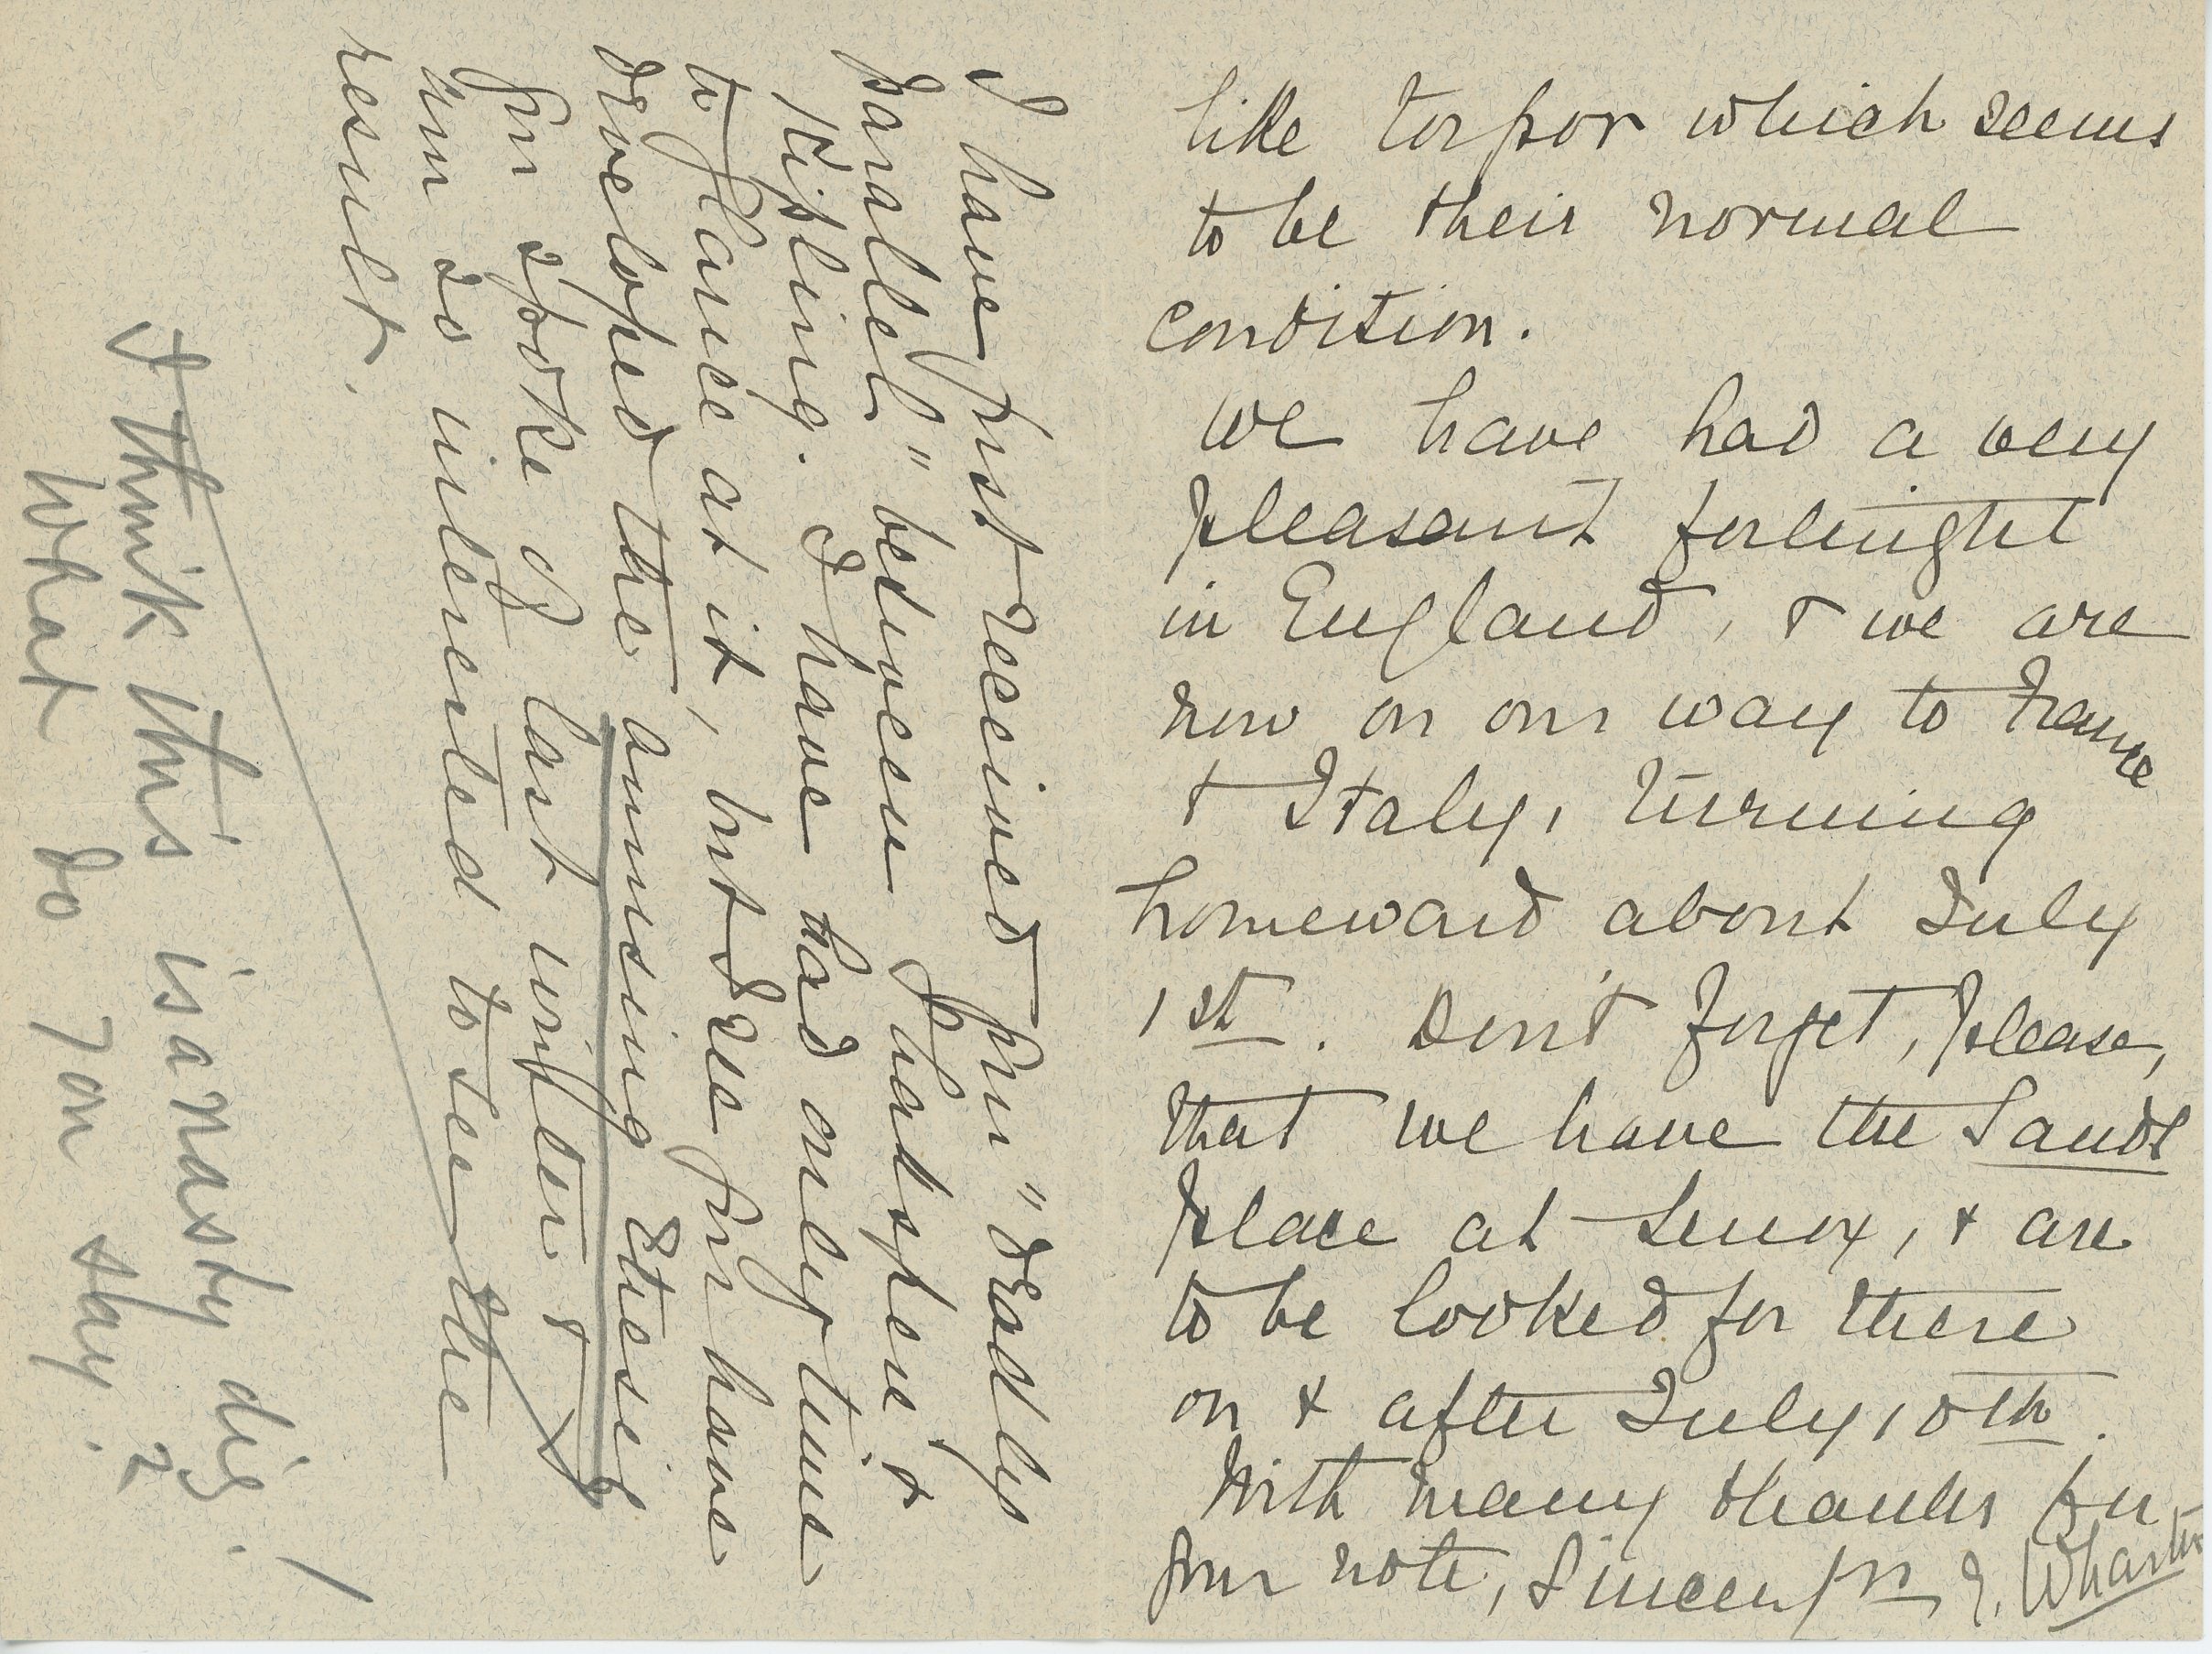 like torpor which seems
to be their normal
condition.
We have had a very
pleasant fortnight
in England, & we are
now on our way to France
& Italy, turning
homeward about July
1st. Don't forget, please,
that we have the Sands
place at Lenox, & are
to be looked for there
on & after July 10th.
With many thanks for
your note, Sincerely yrs E. Wharton
I have just received your "deadly
parallel" between Shakspere &
Kipling. I have had only time
to glance at it, but I see you have
developed the amusing thesis
you spoke of last winter, &
am so interested to see the
result.
I think this is a nasty dig!
What do you say?